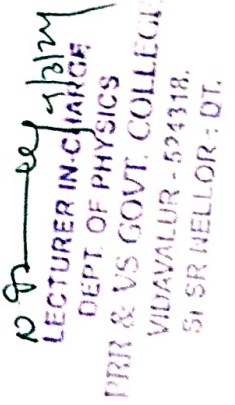 LECTURER IN-CHARGE
DEPT. OF PHYSICS
PRR & VS GOVT. COLLEGE
VIDAVALUR - 524318.
SR NELLOR: DT.